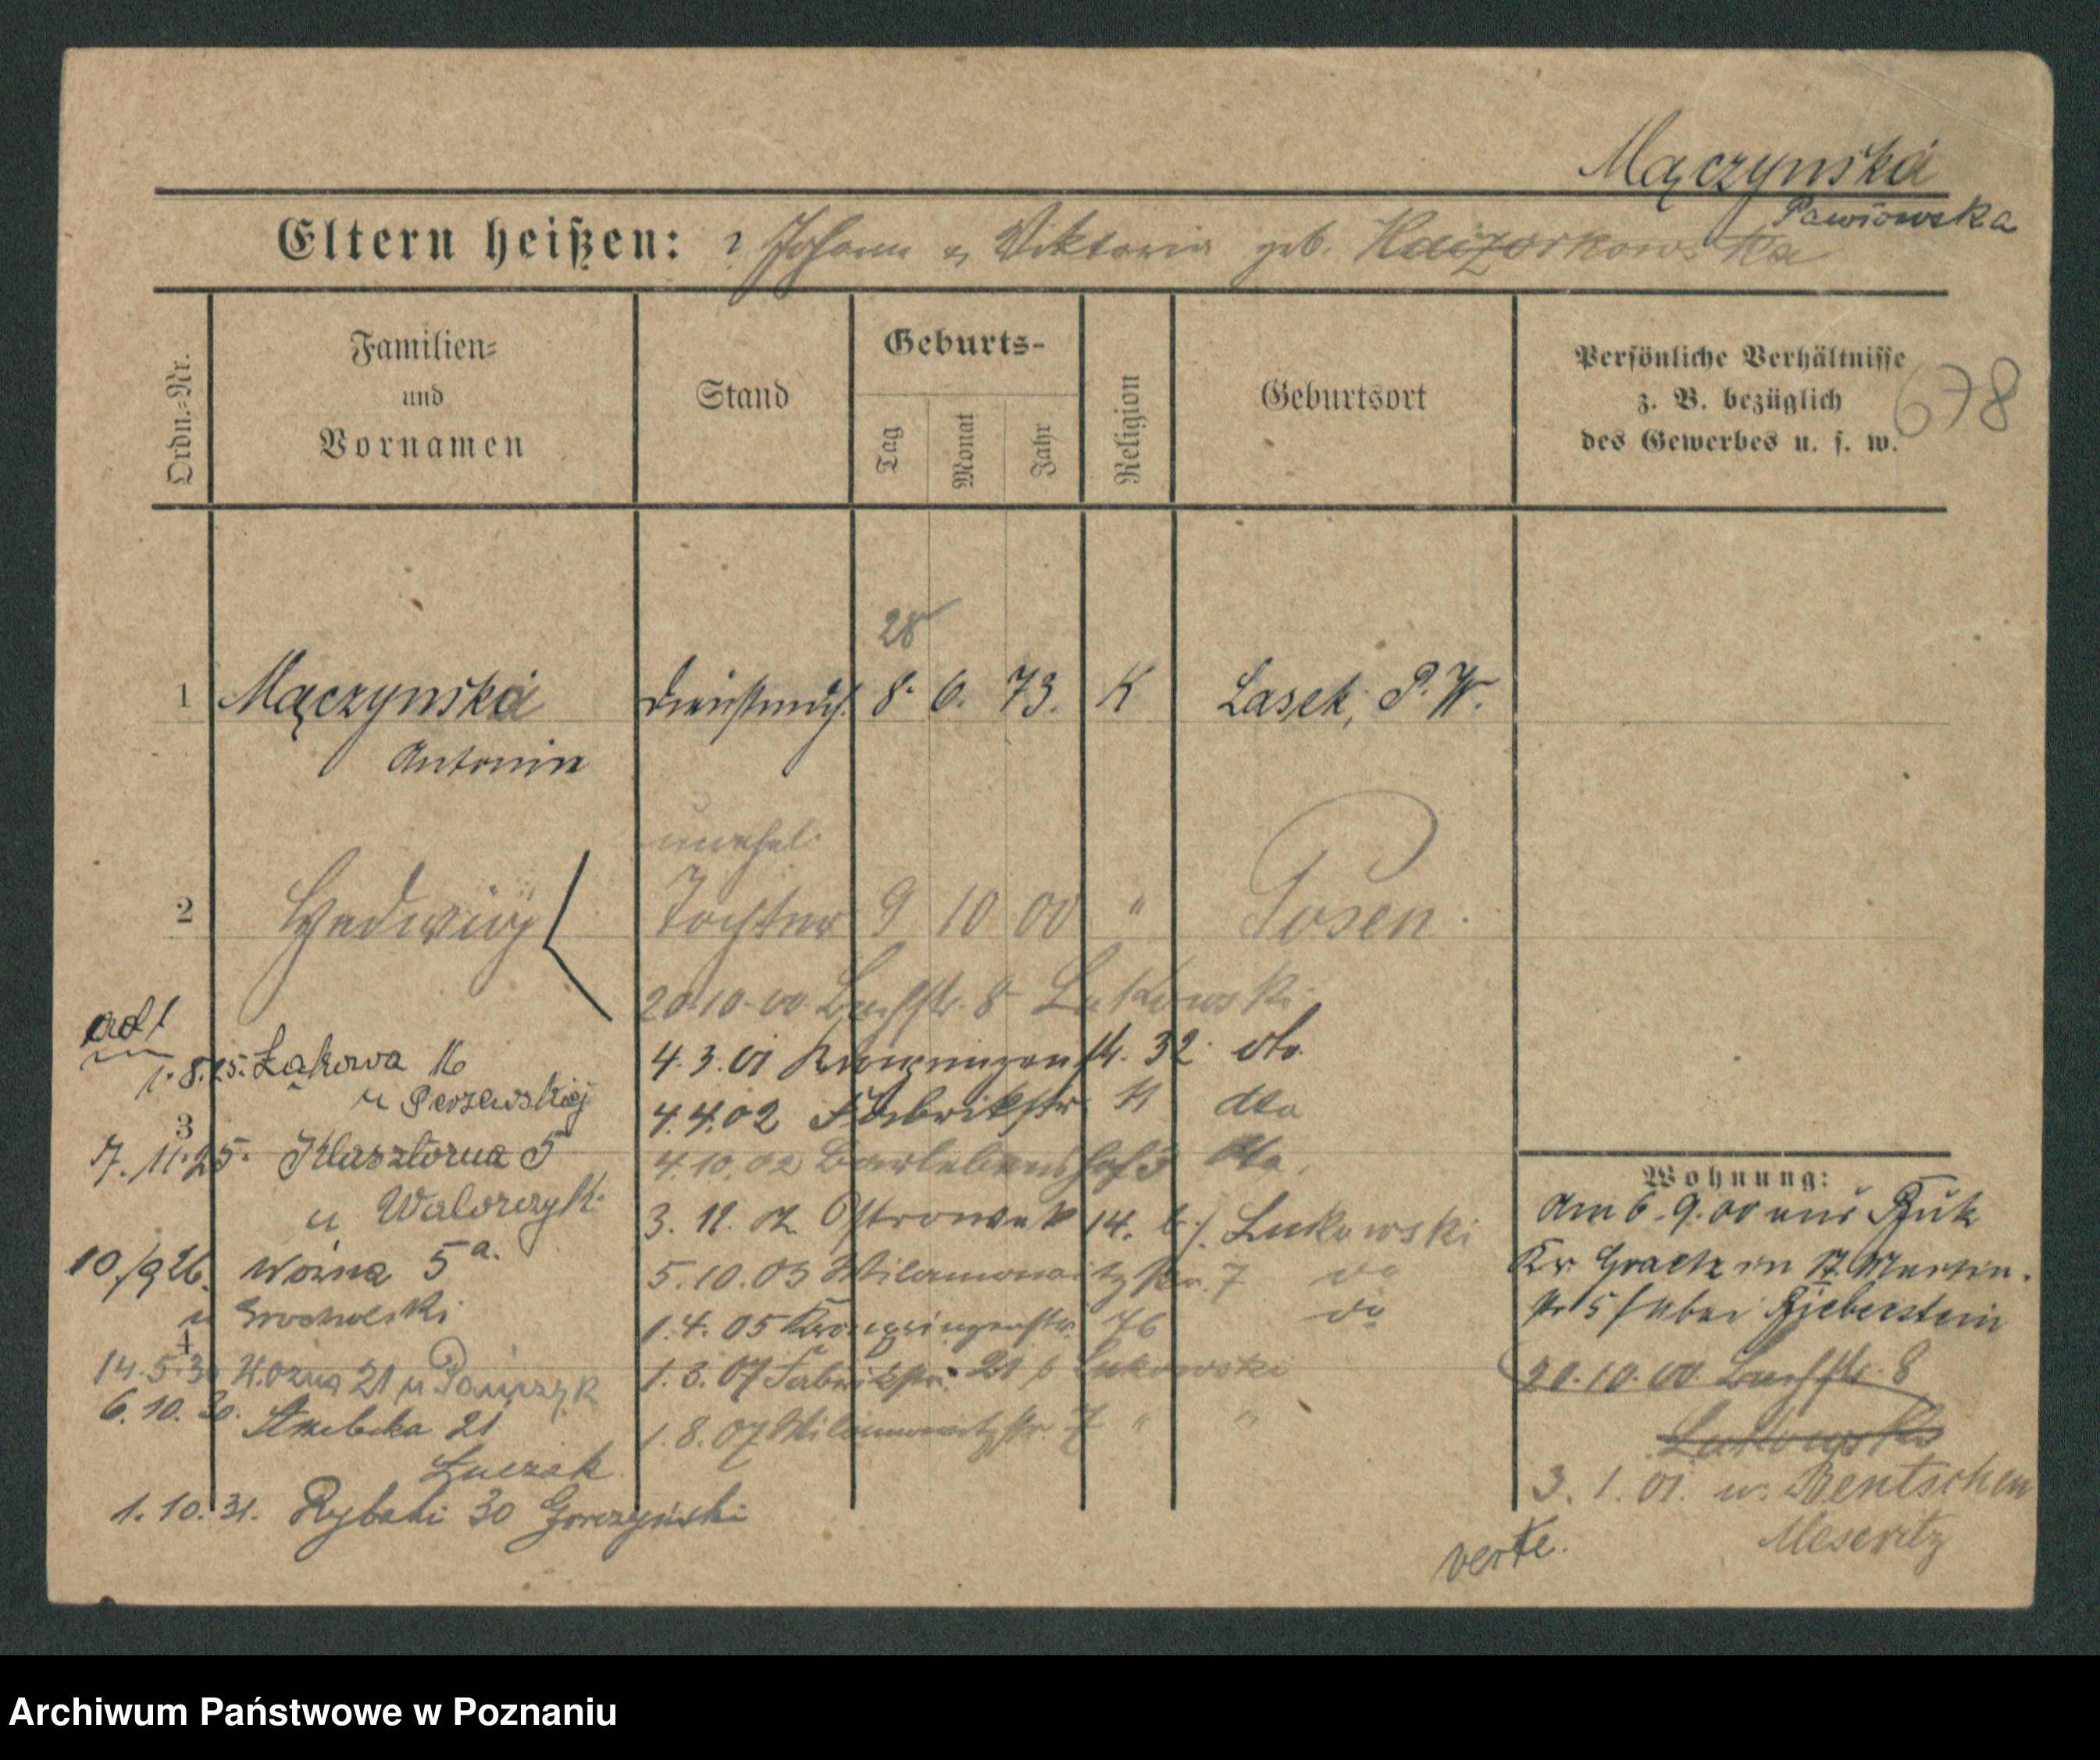 Mączynska
Pawłowska
Eltern heißen: ? Johann u Viktoria geb. Kaczorkowska
Ordn.-Nr.
Familien-
und
Vornamen
Stand
Geburts-
Tag
Monat
Jahr
Religion
Geburtsort
Persönliche Verhältnisse
z. B. bezüglich
des Gewerbes u. s. w.
678
28
1 Mączynska Dienstmdch. 8. 6. 73. K Lasek, P. W.
Antonin
unehel.
2 Hedwig Tochter 9 10 00 " Posen.
20.10.00 Bachstr. 8 Lukowski
4.3.01 Kronprinzenstr. 32. dto.
4.4.02 Fabrikstr. 11 dto
4.10.02 Barlebenshof 3 dto.
3. 11. 02 Ostrowek 14. b/. Lukowski
5.10.03 Wilamowitzstr. 7 do
1.4.05 Kronprinzenstr. 76 do
1.3.07 Fabrikstr. 21 b Lukowski
1.8.07 Wilamowitzstr. 7 " "
1.8.25. Łąkowa 16
u Perzewskiej
3
7.11.25. Klasztorna 5
u Walorczyk.
10./9 26. Woźna 5a.
u Grocholski
4
14.5.30 Woźna 21 u
6.10.30. 21
Łuczak
1.10.31. Rybaki 30 Gorczyński
Wohnung:
Am 6.9.00 aus Buk
Kr. Graetz in St. Martin-
str 5 / Huber Bieberstein
20.10.00 Bachstr. 8
Lukowski
3. 1. 01. n. Bentschen
Meseritz
verte.
Archiwum Państwowe w Poznaniu